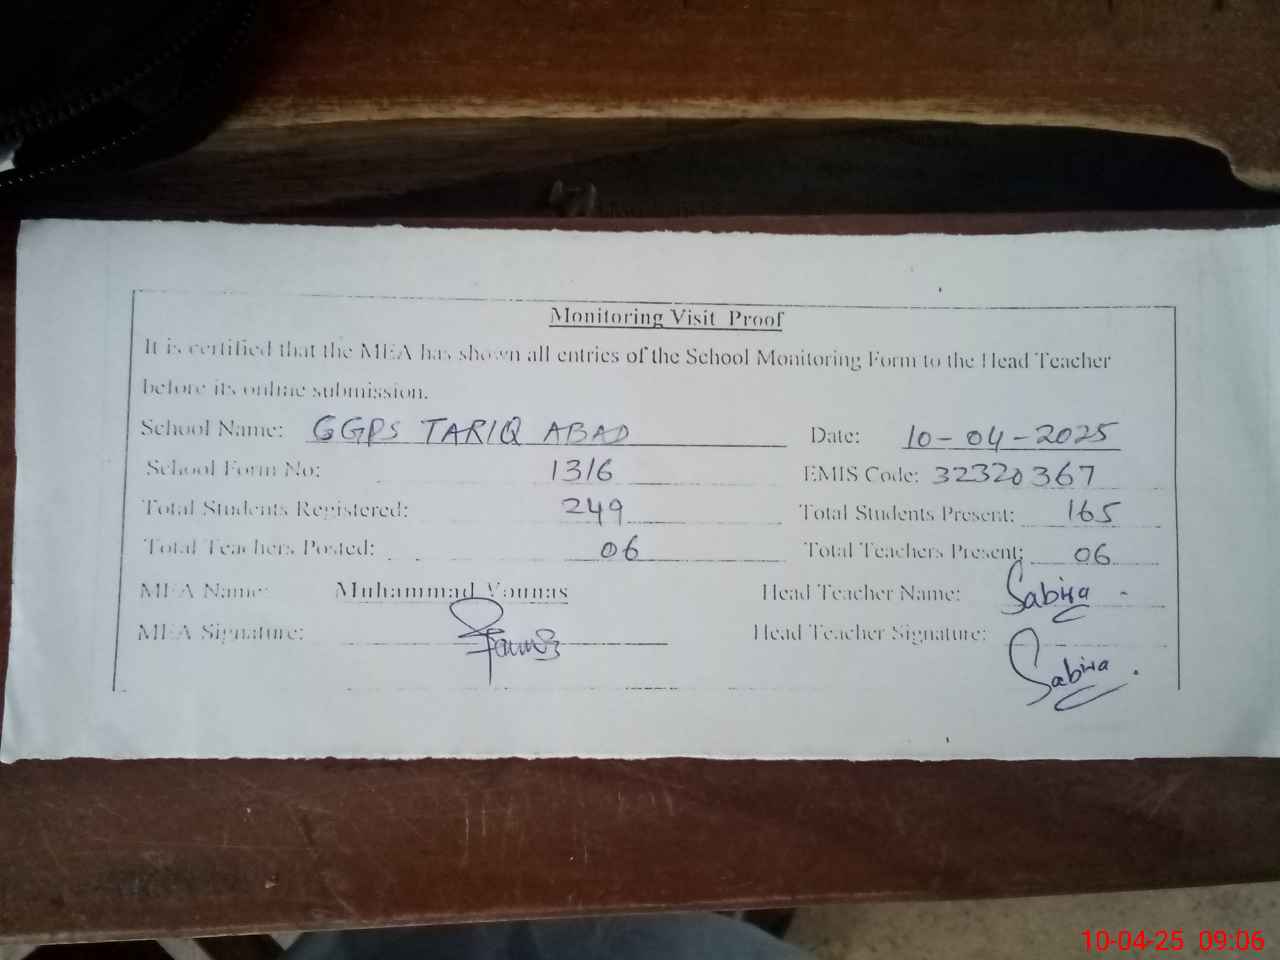 Monitoring Visit Proof
It is certified that the MEA has shown all entries of the School Monitoring Form to the Head Teacher
before its online submission.
School Name: GGPS TARIQ ABAD Date: 10-04-2025
School Form No: 1316 EMIS Code: 32320367
Total Students Registered: 249 Total Students Present: 165
Total Teachers Posted: 06 Total Teachers Present: 06
MEA Name: Muhammad Younas Head Teacher Name: Sabira
MEA Signature: Head Teacher Signature:
Sabira
10-04-25 09:06